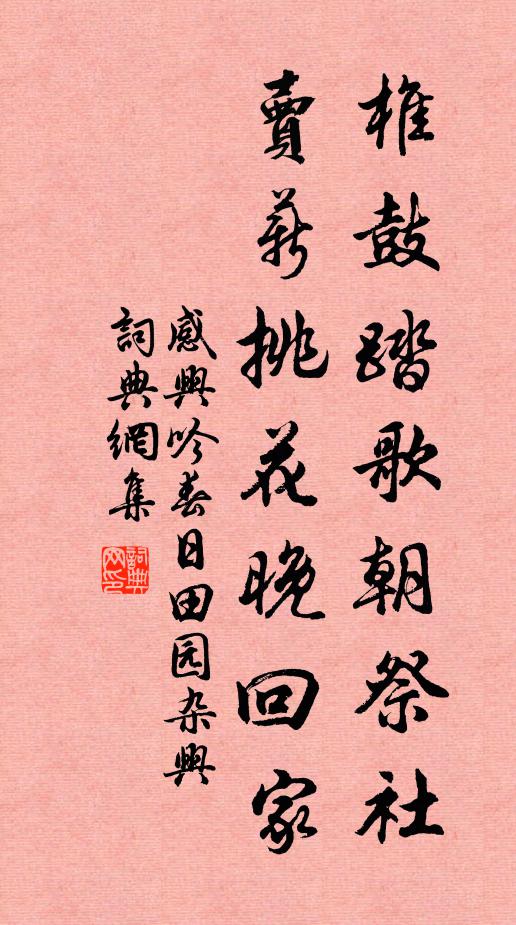 椎鼓踏歌朝祭社
賣薪挑花晚回家
感興吟春日田园杂興
詞典網集
詞典
网印